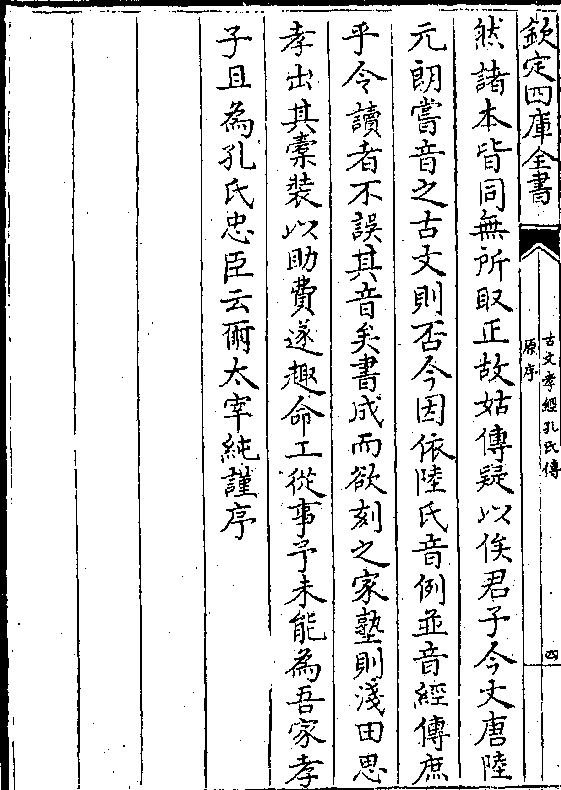 欽定四庫全書
古文孝經孔氏傳
原序
四
然諸本皆同無所取正故姑傳疑以俟君子今文唐陸
元朗嘗音之古文則否今因依陸氏音例並音經傳庶
乎令讀者不誤其音矣書成而欲刻之家塾則淺田思
孝出其橐裝以助費遂趣命工從事予未能為吾家孝
子且為孔氏忠臣云爾太宰純謹序